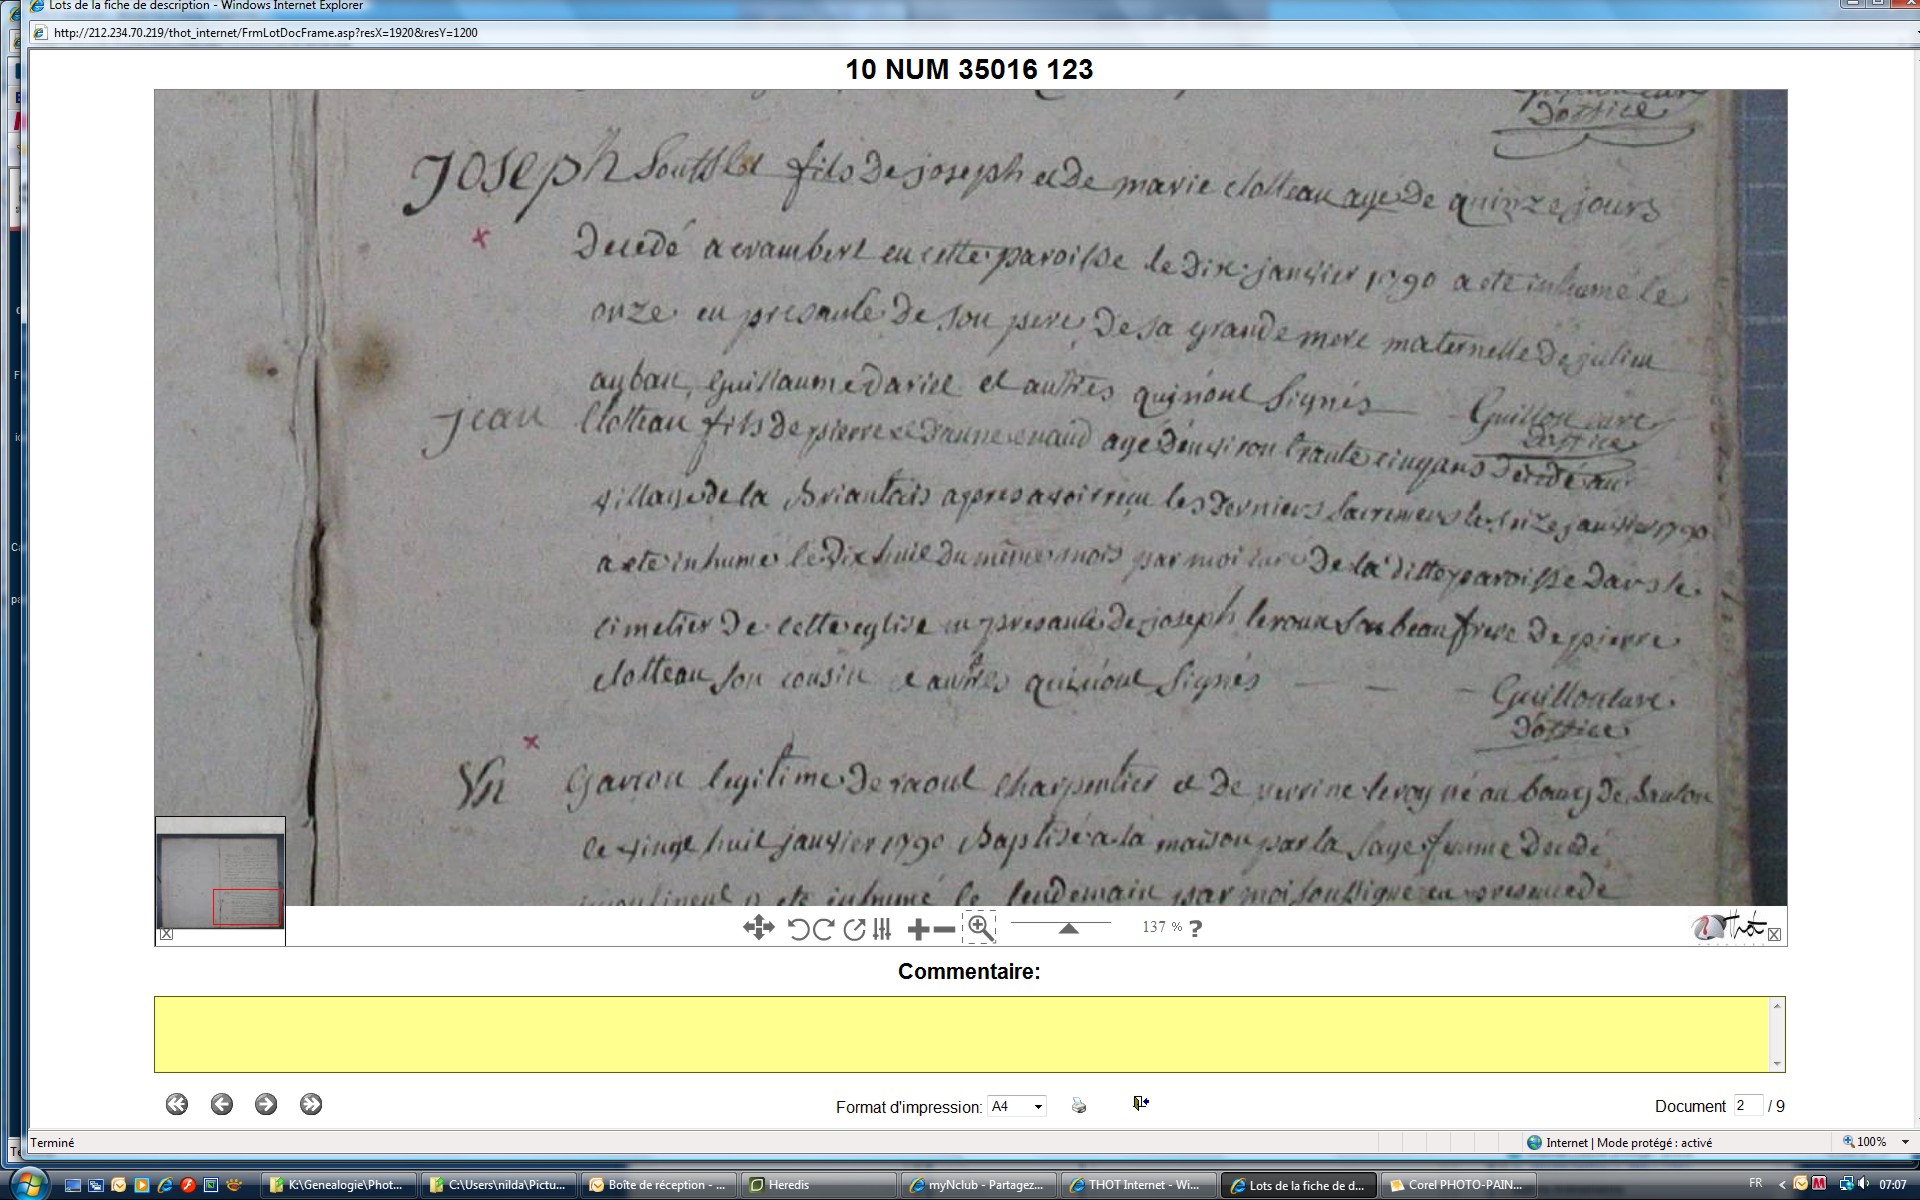 Lots de la fiche de description - Windows Internet Explorer
http://212.234.70.219/thot_internet/FrmLotDocFrame.asp?resX=1920&resY=1200
10 NUM 35016 123
D'office
Joseph Soufflot fils de joseph et de marie clolteau agé de quinze jours
Decedé a evambert en cette paroisse le dix janvier 1790 a eté inhumé le
onze en presance de son pere, de sa grande mere maternelle de julien
auban, Guillaume daviel et autres qui n'ont Signés Guillou curé
D'office
jean Clolteau fils de pierre et d'anne agé d'environ trante cinq ans decedé au
village de la Briantais apres avoir reçu les derniers Sacremens le janvier 1790
a eté inhumé le dix huit du même mois par moi curé de la ditte paroisse dans le
cimetier de cette eglise en presance de joseph leroux son beau frere de pierre
clolteau son cousin et autres qui n'ont Signés Guillou curé
D'office
Un Garcon legitime de raoul Charpentier et de perrine leroy né au bourg de
le vingt huit janvier 1790 Baptisé a la maison par la Sage femme decedé
a eté inhumé le lendemain par moi Soussigné en presence de
137 %
?
Thot
Commentaire:
Format d'impression: A4
Document 2 / 9
Terminé
Internet | Mode protégé : activé
100%
K:\Genealogie\Phot...
C:\Users\nilda\Pictu...
Boîte de réception - ...
Heredis
myNclub - Partagez...
THOT Internet - Wi...
Lots de la fiche de d...
Corel PHOTO-PAIN...
FR
07:07